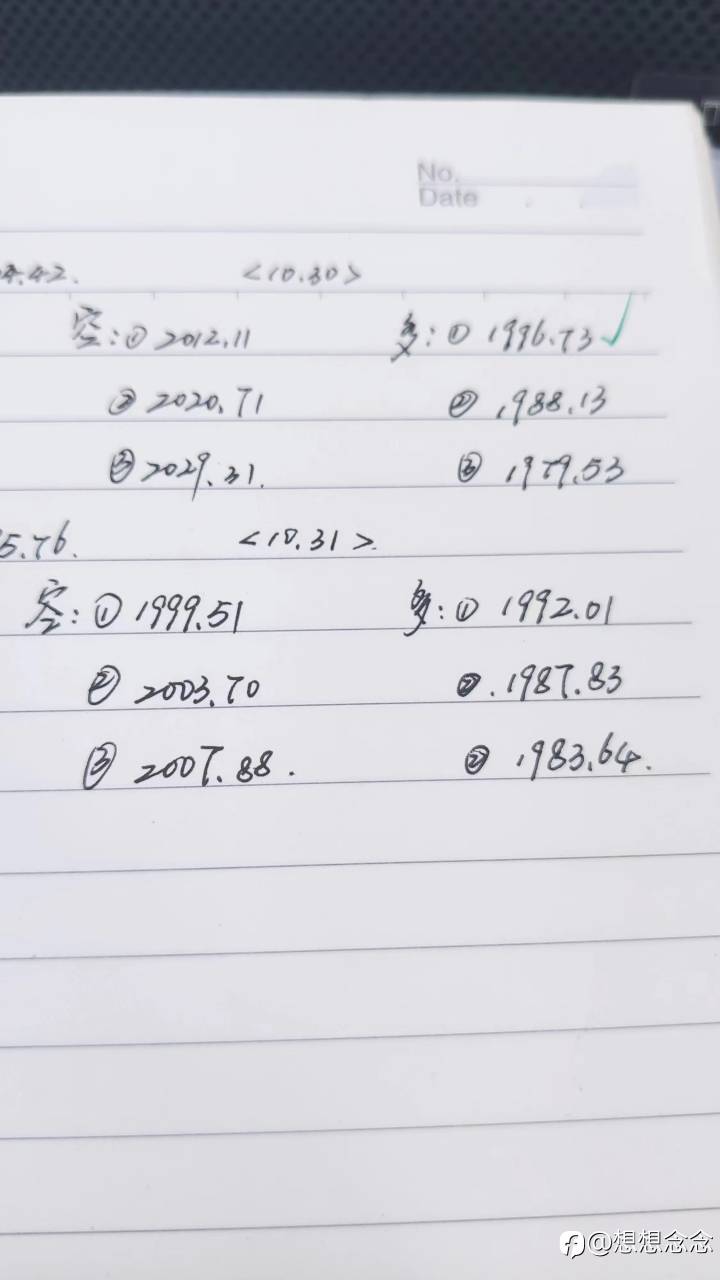 No.
Date
4.42. <10.30>
空:① 2012.11 多:① 1996.73✓
② 2020.71 ② 1988.13
③ 2029.31. ③ 1979.53
5.76. <10.31>.
空:① 1999.51 多:① 1992.01
② 2003.70 ②.1987.83
③ 2007.88. ② 1983.64.
@想想念念